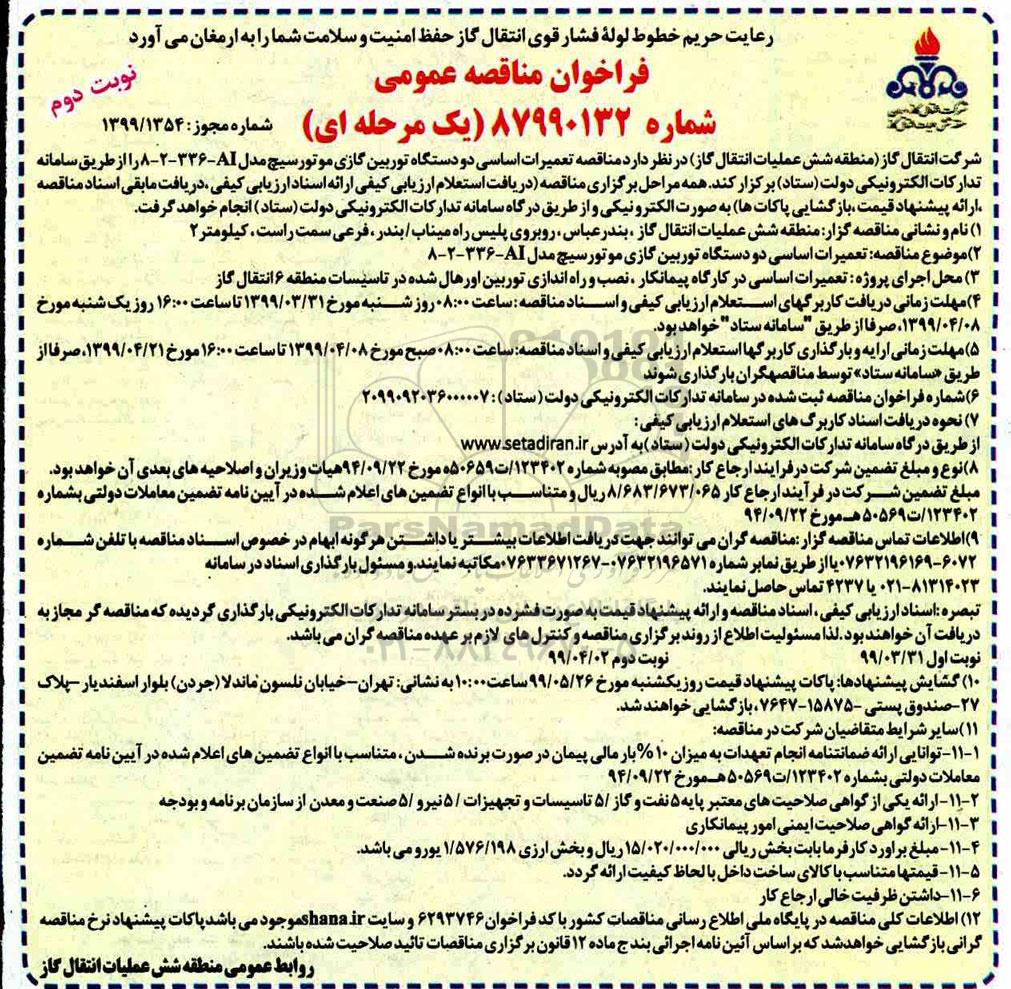 رعایت حریم خطوط لولهٔ فشار قوی انتقال گاز حفظ امنیت و سلامت شما را به ارمغان می آورد
فراخوان مناقصه عمومی
نوبت دوم
شماره ۸۷۹۹۰۱۳۲ (یک مرحله ای)
شماره مجوز: ۱۳۹۹/۱۳۵۴
شرکت انتقال گاز (منطقه شش عملیات انتقال گاز) در نظر دارد مناقصه تعمیرات اساسی دو دستگاه توربین گازی موتورسیچ مدل AI-۳۳۶-۲-۸ را از طریق سامانه
تدارکات الکترونیکی دولت (ستاد) برگزار کند. همه مراحل برگزاری مناقصه (دریافت استعلام ارزیابی کیفی ارائه اسناد ارزیابی کیفی، دریافت مابقی اسناد مناقصه
،ارائه پیشنهاد قیمت، بازگشایی پاکات ها) به صورت الکترونیکی و از طریق درگاه سامانه تدارکات الکترونیکی دولت (ستاد) انجام خواهد گرفت.
۱) نام و نشانی مناقصه گزار: منطقه شش عملیات انتقال گاز، بندرعباس، روبروی پلیس راه میناب/بندر، فرعی سمت راست، کیلومتر۲
۲)موضوع مناقصه: تعمیرات اساسی دو دستگاه توربین گازی موتورسیچ مدل AI-۳۳۶-۲-۸
۳) محل اجرای پروژه: تعمیرات اساسی در کارگاه پیمانکار، نصب و راه اندازی توربین اورهال شده در تاسیسات منطقه ۶ انتقال گاز
۴)مهلت زمانی دریافت کاربرگهای استعلام ارزیابی کیفی و اسناد مناقصه: ساعت ۰۸:۰۰ روز شنبه مورخ ۱۳۹۹/۰۳/۳۱ تا ساعت ۱۶:۰۰ روز یک شنبه مورخ
۱۳۹۹/۰۴/۰۸، صرفا از طریق "سامانه ستاد" خواهد بود.
۵)مهلت زمانی ارایه و بارگذاری کاربرگها استعلام ارزیابی کیفی و اسناد مناقصه: ساعت ۰۸:۰۰ صبح مورخ ۱۳۹۹/۰۴/۰۸ تا ساعت ۱۶:۰۰ مورخ ۱۳۹۹/۰۴/۲۱، صرفا از
طریق «سامانه ستاد» توسط مناقصهگران بارگذاری شوند
۶)شماره فراخوان مناقصه ثبت شده در سامانه تدارکات الکترونیکی دولت (ستاد): ۲۰۹۹۰۹۲۰۳۶۰۰۰۰۰۷
۷) نحوه دریافت اسناد کاربرگ های استعلام ارزیابی کیفی:
از طریق درگاه سامانه تدارکات الکترونیکی دولت (ستاد) به آدرس www.setadiran.ir
۸)نوع و مبلغ تضمین شرکت در فرایند ارجاع کار: مطابق مصوبه شماره ۱۲۳۴۰۲/ت۵۰۶۵۹ه مورخ ۹۴/۰۹/۲۲ هیات وزیران و اصلاحیه های بعدی آن خواهد بود.
مبلغ تضمین شرکت در فرآیند ارجاع کار ۸/۶۸۳/۶۷۳/۰۶۵ ریال و متناسب با انواع تضمین های اعلام شده در آیین نامه تضمین معاملات دولتی بشماره
۱۲۳۴۰۲/ت۵۰۵۶۹هـ مورخ ۹۴/۰۹/۲۲
۹)اطلاعات تماس مناقصه گزار: مناقصه گران می توانند جهت دریافت اطلاعات بیشتر یا داشتن هرگونه ابهام در خصوص اسناد مناقصه با تلفن شماره
۰۷۶۳۲۱۹۶۱۶۹-۶۰۷۲ یا از طریق نمابر شماره ۰۷۶۳۲۱۹۶۵۷۱-۰۷۶۳۳۶۷۱۲۶۷ مکاتبه نمایند. و مسئول بارگذاری اسناد در سامانه
۰۲۱-۸۱۳۱۴۰۲۳ یا ۴۲۳۷ تماس حاصل نمایند.
تبصره: اسناد ارزیابی کیفی، اسناد مناقصه و ارائه پیشنهاد قیمت به صورت فشرده در بستر سامانه تدارکات الکترونیکی بارگذاری گردیده که مناقصه گر مجاز به
دریافت آن خواهند بود. لذا مسئولیت اطلاع از روند برگزاری مناقصه و کنترل های لازم بر عهده مناقصه گران می باشد.
نوبت اول ۹۹/۰۳/۳۱ نوبت دوم ۹۹/۰۴/۰۲
۱۰) گشایش پیشنهادها: پاکات پیشنهاد قیمت روز یکشنبه مورخ ۹۹/۰۵/۲۶ ساعت ۱۰:۰۰ به نشانی: تهران-خیابان نلسون ماندلا (جردن) بلوار اسفندیار -پلاک
۲۷-صندوق پستی -۱۵۸۷۵-۷۶۴۷، بازگشایی خواهند شد.
۱۱)سایر شرایط متقاضیان شرکت در مناقصه:
۱-۱۱-توانایی ارائه ضمانتنامه انجام تعهدات به میزان ۱۰% بار مالی پیمان در صورت برنده شدن، متناسب با انواع تضمین های اعلام شده در آیین نامه تضمین
معاملات دولتی بشماره ۱۲۳۴۰۲/ت۵۰۵۶۹هـ مورخ ۹۴/۰۹/۲۲
۲-۱۱-ارائه یکی از گواهی صلاحیت های معتبر پایه ۵ نفت و گاز /۵ تاسیسات و تجهیزات /۵ نیرو /۵ صنعت و معدن از سازمان برنامه و بودجه
۳-۱۱-ارائه گواهی صلاحیت ایمنی امور پیمانکاری
۴-۱۱-مبلغ براورد کارفرما بابت بخش ریالی ۱۵/۰۲۰/۰۰۰/۰۰۰ ریال و بخش ارزی ۱/۵۷۶/۱۹۸ یورو می باشد.
۵-۱۱-قیمتها متناسب با کالای ساخت داخل با لحاظ کیفیت ارائه گردد.
۶-۱۱-داشتن ظرفیت خالی ارجاع کار
۱۲) اطلاعات کلی مناقصه در پایگاه ملی اطلاع رسانی مناقصات کشور با کد فراخوان ۶۲۹۳۷۴۶ و سایت shana.ir موجود می باشد پاکات پیشنهاد نرخ مناقصه
گرانی بازگشایی خواهد شد که بر اساس آئین نامه اجرائی بند ج ماده ۱۲ قانون برگزاری مناقصات تائید صلاحیت شده باشند.
روابط عمومی منطقه شش عملیات انتقال گاز
ParsNamadData